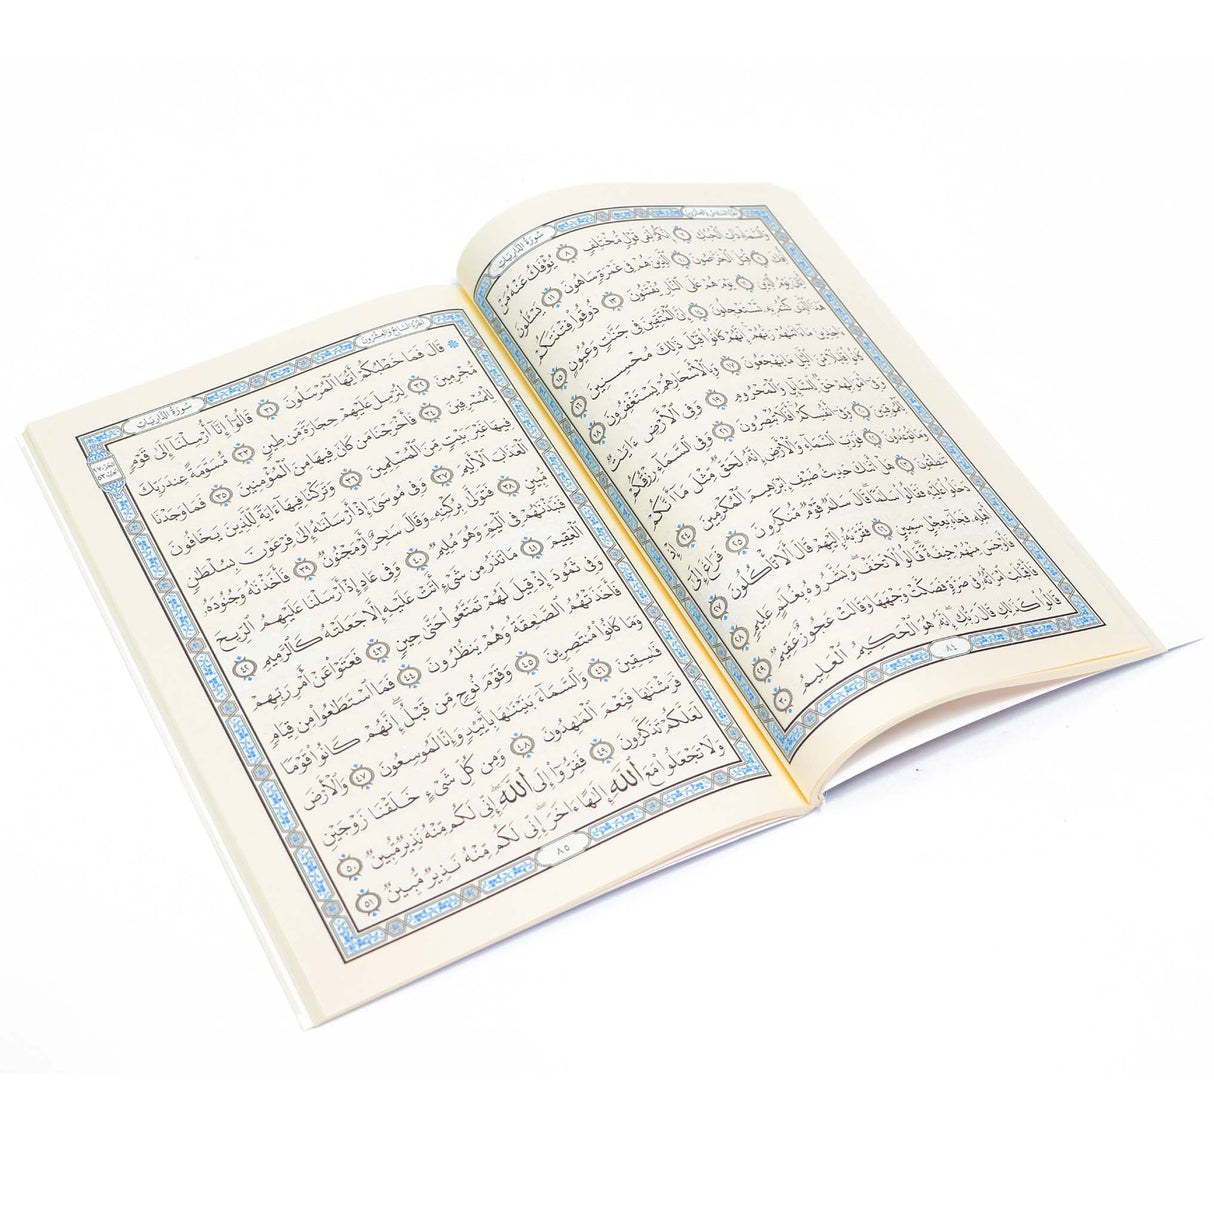 الجزء السادس والعشرون
سُورَةُ الذَّارِيَاتِ
وَٱلسَّمَآءِ ذَاتِ ٱلْحُبُكِ ٧ إِنَّكُمْ لَفِى قَوْلٍ مُّخْتَلِفٍ ٨ يُؤْفَكُ عَنْهُ مَنْ
أُفِكَ ٩ قُتِلَ ٱلْخَرَّٰصُونَ ١٠ ٱلَّذِينَ هُمْ فِى غَمْرَةٍ سَاهُونَ ١١ يَسْـَٔلُونَ
أَيَّانَ يَوْمُ ٱلدِّينِ ١٢ يَوْمَ هُمْ عَلَى ٱلنَّارِ يُفْتَنُونَ ١٣ ذُوقُوا۟ فِتْنَتَكُمْ
هَٰذَا ٱلَّذِى كُنتُم بِهِۦ تَسْتَعْجِلُونَ ١٤ إِنَّ ٱلْمُتَّقِينَ فِى جَنَّٰتٍ وَعُيُونٍ ١٥
ءَاخِذِينَ مَآ ءَاتَىٰهُمْ رَبُّهُمْ إِنَّهُمْ كَانُوا۟ قَبْلَ ذَٰلِكَ مُحْسِنِينَ ١٦
كَانُوا۟ قَلِيلًا مِّنَ ٱلَّيْلِ مَا يَهْجَعُونَ ١٧ وَبِٱلْأَسْحَارِ هُمْ يَسْتَغْفِرُونَ ١٨
وَفِىٓ أَمْوَٰلِهِمْ حَقٌّ لِّلسَّآئِلِ وَٱلْمَحْرُومِ ١٩ وَفِى ٱلْأَرْضِ ءَايَٰتٌ
لِّلْمُوقِنِينَ ٢٠ وَفِىٓ أَنفُسِكُمْ أَفَلَا تُبْصِرُونَ ٢١ وَفِى ٱلسَّمَآءِ رِزْقُكُمْ
وَمَا تُوعَدُونَ ٢٢ فَوَرَبِّ ٱلسَّمَآءِ وَٱلْأَرْضِ إِنَّهُۥ لَحَقٌّ مِّثْلَ مَآ أَنَّكُمْ
تَنطِقُونَ ٢٣ هَلْ أَتَىٰكَ حَدِيثُ ضَيْفِ إِبْرَٰهِيمَ ٱلْمُكْرَمِينَ ٢٤
إِذْ دَخَلُوا۟ عَلَيْهِ فَقَالُوا۟ سَلَٰمًا قَالَ سَلَٰمٌ قَوْمٌ مُّنكَرُونَ ٢٥ فَرَاغَ إِلَىٰٓ
أَهْلِهِۦ فَجَآءَ بِعِجْلٍ سَمِينٍ ٢٦ فَقَرَّبَهُۥٓ إِلَيْهِمْ قَالَ أَلَا تَأْكُلُونَ ٢٧
فَأَوْجَسَ مِنْهُمْ خِيفَةً قَالُوا۟ لَا تَخَفْ وَبَشَّرُوهُ بِغُلَٰمٍ عَلِيمٍ ٢٨
فَأَقْبَلَتِ ٱمْرَأَتُهُۥ فِى صَرَّةٍ فَصَكَّتْ وَجْهَهَا وَقَالَتْ عَجُوزٌ عَقِيمٌ ٢٩
قَالُوا۟ كَذَٰلِكِ قَالَ رَبُّكِ إِنَّهُۥ هُوَ ٱلْحَكِيمُ ٱلْعَلِيمُ ٣٠
٨٤
الجزء السابع والعشرون
سُورَةُ الذَّارِيَاتِ
۞ قَالَ فَمَا خَطْبُكُمْ أَيُّهَا ٱلْمُرْسَلُونَ ٣١ قَالُوٓا۟ إِنَّآ أُرْسِلْنَآ إِلَىٰ قَوْمٍ
مُّجْرِمِينَ ٣٢ لِنُرْسِلَ عَلَيْهِمْ حِجَارَةً مِّن طِينٍ ٣٣ مُّسَوَّمَةً عِندَ رَبِّكَ
لِلْمُسْرِفِينَ ٣٤ فَأَخْرَجْنَا مَن كَانَ فِيهَا مِنَ ٱلْمُؤْمِنِينَ ٣٥ فَمَا وَجَدْنَا
فِيهَا غَيْرَ بَيْتٍ مِّنَ ٱلْمُسْلِمِينَ ٣٦ وَتَرَكْنَا فِيهَآ ءَايَةً لِّلَّذِينَ يَخَافُونَ
ٱلْعَذَابَ ٱلْأَلِيمَ ٣٧ وَفِى مُوسَىٰٓ إِذْ أَرْسَلْنَٰهُ إِلَىٰ فِرْعَوْنَ بِسُلْطَٰنٍ
مُّبِينٍ ٣٨ فَتَوَلَّىٰ بِرُكْنِهِۦ وَقَالَ سَٰحِرٌ أَوْ مَجْنُونٌ ٣٩ فَأَخَذْنَٰهُ وَجُنُودَهُۥ
فَنَبَذْنَٰهُمْ فِى ٱلْيَمِّ وَهُوَ مُلِيمٌ ٤٠ وَفِى عَادٍ إِذْ أَرْسَلْنَا عَلَيْهِمُ ٱلرِّيحَ
ٱلْعَقِيمَ ٤١ مَا تَذَرُ مِن شَىْءٍ أَتَتْ عَلَيْهِ إِلَّا جَعَلَتْهُ كَٱلرَّمِيمِ ٤٢
وَفِى ثَمُودَ إِذْ قِيلَ لَهُمْ تَمَتَّعُوا۟ حَتَّىٰ حِينٍ ٤٣ فَعَتَوْا۟ عَنْ أَمْرِ رَبِّهِمْ
فَأَخَذَتْهُمُ ٱلصَّٰعِقَةُ وَهُمْ يَنظُرُونَ ٤٤ فَمَا ٱسْتَطَٰعُوا۟ مِن قِيَامٍ
وَمَا كَانُوا۟ مُنتَصِرِينَ ٤٥ وَقَوْمَ نُوحٍ مِّن قَبْلُ إِنَّهُمْ كَانُوا۟ قَوْمًا
فَٰسِقِينَ ٤٦ وَٱلسَّمَآءَ بَنَيْنَٰهَا بِأَيْي۟دٍ وَإِنَّا لَمُوسِعُونَ ٤٧ وَٱلْأَرْضَ
فَرَشْنَٰهَا فَنِعْمَ ٱلْمَٰهِدُونَ ٤٨ وَمِن كُلِّ شَىْءٍ خَلَقْنَا زَوْجَيْنِ
لَعَلَّكُمْ تَذَكَّرُونَ ٤٩ فَفِرُّوٓا۟ إِلَى ٱللَّهِ إِنِّى لَكُم مِّنْهُ نَذِيرٌ مُّبِينٌ ٥٠
وَلَا تَجْعَلُوا۟ مَعَ ٱللَّهِ إِلَٰهًا ءَاخَرَ إِنِّى لَكُم مِّنْهُ نَذِيرٌ مُّبِينٌ ٥١
٨٥